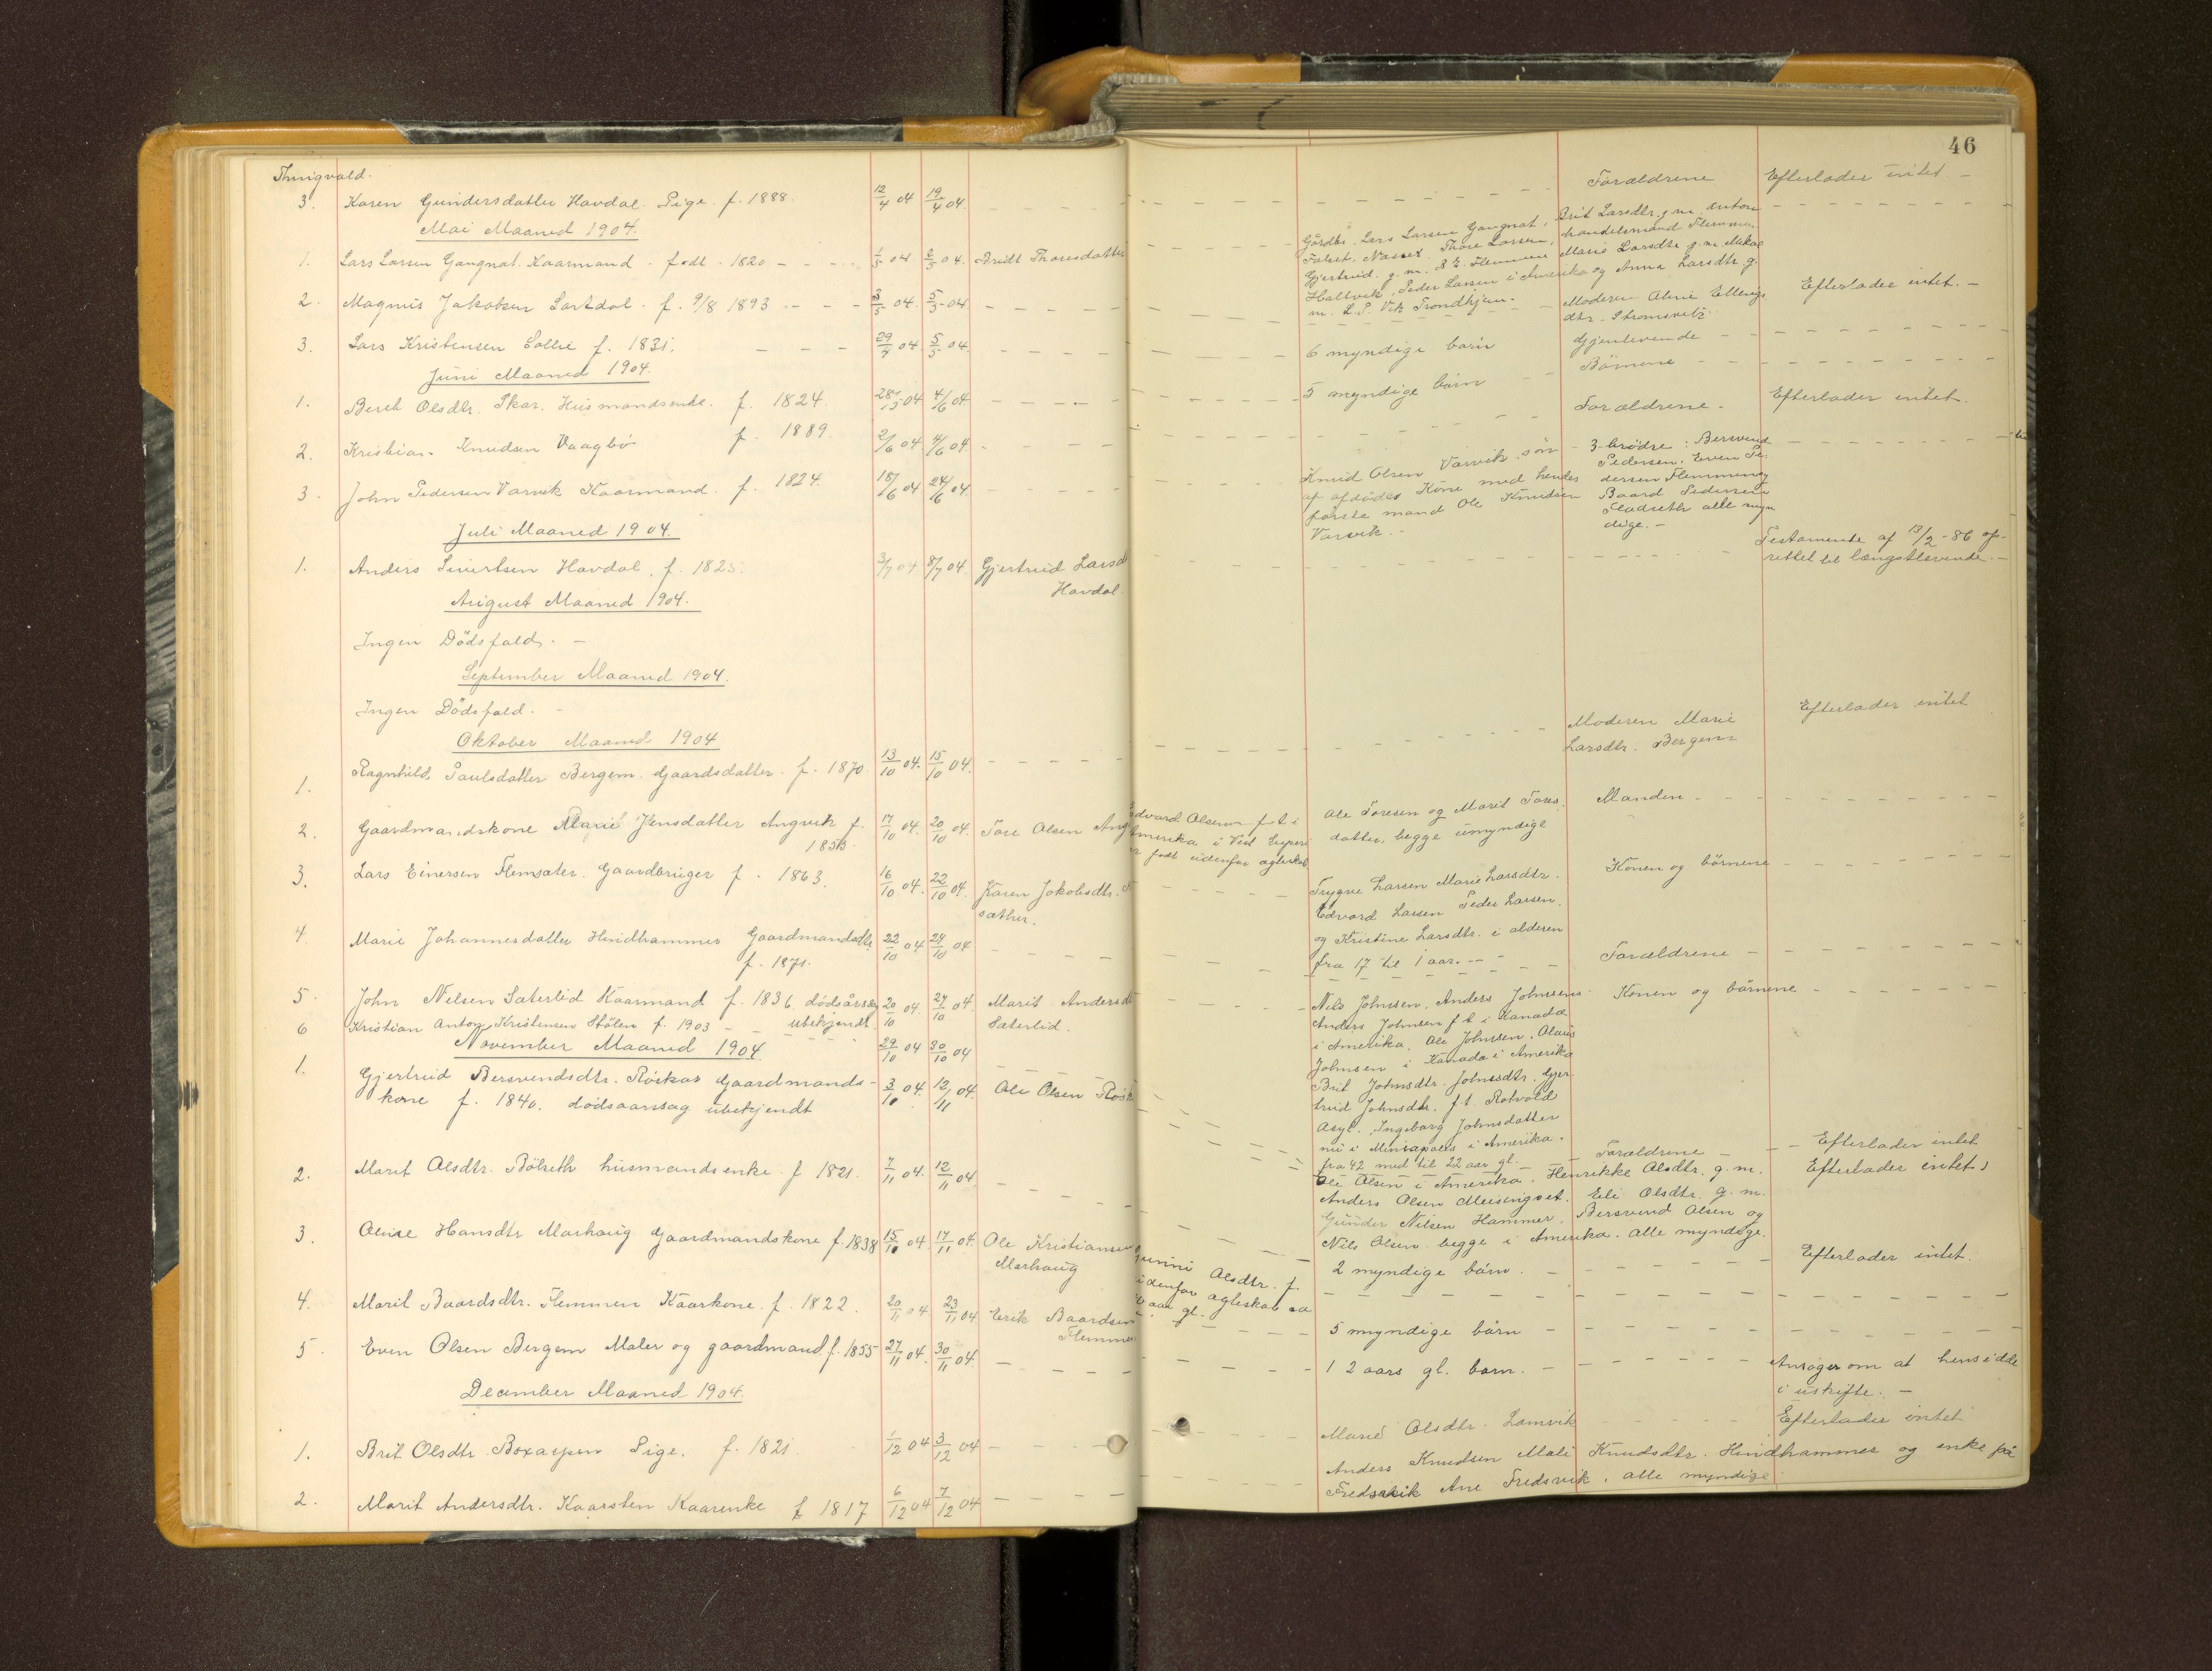 46
Thingvold.
3. Karen Gundersdatter Havdal. Pige. f. 1888. 12/4 04 19/4 04. Forældrene Efterlader intet -
Mai Maaned 1904.
1. Lars Larsen Gangnat. Kaarmand. født 1820 1/5 04 04. Bridt Thoresdatter
Gårdbr. Lars Larsen Gangnat, Brit Larsdtr. g. m. Anton
Thore Larsen, handelsmand Flemmen
Gjertrud. g. m. Flemmen Marie Larsdtr g. m.
Haltvik, Peder Larsen i Amerika og Anna Larsdtr. g.
m. L. P. Vik Trondhjem.
2. Magnus Jakobsen f. 9/8 1893 3/5 04. 5/5-04. Moderen Ellings
dtr. Strømsvik Efterlader intet. -
3. Lars Kristensen f. 1831. 29/4 04 5/5 04. 6 myndige børn Gjenlevende
Juni Maaned 1904.
1. Berit Olsdtr. Skar. Husmandsenke. f. 1824. 28/5 04 4/6 04 5 myndige børn Børnene
2. Kristian Knudsen Vaagbø f. 1889. 2/6 04 4/6 04. Forældrene. Efterlader intet.
3. John Pedersen Varvik Kaarmand. f. 1824. 18/6 04 24/6 04.
Knud Olsen Varvik søn
af afdødes Kone med hendes
første mand Ole Knudsen
Varvik.
3 brødre: Bersvend
Pedersen, Even Pe-
dersen Flemmen og
Baard Pedersen
alle myn
dige. -
Juli Maaned 1904.
1. Anders Sivertsen Havdal. f. 1825. 3/7 04 8/7 04. Gjertrud Larsd
Havdal.
Testamente af 13/2-86 op-
rettet til længstlevende. -
August Maaned 1904.
Ingen Dødsfald. -
September Maaned 1904.
Ingen Dødsfald. -
Oktober Maaned 1904
1. Ragnhild Paulsdatter Bergem. Gaardsdatter. f. 1870 13/10 04. 15/10 04. Moderen Marie
Larsdtr. Bergem Efterlader intet
2. Gaardmandskone Marie Jensdatter Angvik f. 17/10 04. 20/10 04. Tore Olsen Ang
Edvard Olsen f. t. i
Amerika i Vest
født udenfor ægteskab
Ole Toresen og Marit Tores
datter, begge umyndige
Manden
3. Lars Einersen Flemsæter. Gaardbruger f. 1863. 16/10 04. 22/10 04. Karen Jakobsdtr.
sæther.
Trygve Larsen Marie Larsdtr.
Edvard Larsen Peder Larsen.
og Kristine Larsdtr. i alderen
fra 17 til 1 aar.
Konen og børnene
4. Marie Johannesdatter Hindhammer Gaardmandsdtr. 22/10 04 24/10 04
f. 1871. Forældrene
5. John Nelsen Sæterlid Kaarmand f. 1836 dødsårsag 20/10 04. 27/10 04. Marit Andersd
ubekjendt. Sæterlid.
Nils Johnsen. Anders Johnsens Konen og børnene
Anders Johnsen f t i Kanada
i Amerika. Ole Johnsen, Olaus
Johnsen i Kanada i Amerika
Brit Johnsdtr. Johnsdtr. Gjer
trud Johnsdtr. f. t. Rotvold
Asyl. Ingeborg Johnsdatter
nu i i Amerika.
fra 42 med til 22 aar gl.
6 Kristian Anton Kristensen Stølen f. 1903 29/10 04 30/10 04 Forældrene Efterlader intet
November Maaned 1904.
1. Gjertrud Bersvendsdtr. Røskar Gaardmands- 3/10 04. 12/11 04. Ole Olsen Røsk
kone f. 1840. dødsaarsag ubekjendt
Ole Olsen i Amerika. Henrikke Olsdtr. g. m.
Anders Olsen Meisingset. Eli Olsdtr. g. m.
Gunder Nilsen Hammer. Bersvend Olsen og
Nils Olsen begge i Amerika. Alle myndige.
Efterlader intet
2. Marit Olsdtr. Bølseth husmandsenke. f 1821. 7/11 04. 12/11 04. 2 myndige børn. Efterlader intet.
3. Hansdtr Morhaug Gaardmandskone f. 1838 15/10 04. 17/11 04. Ole Kristiansen
Morhaug
Gunni Olsdtr. f.
udenfor ægteskab
aar gl.
4. Marit Baardsdtr. Flemmen Kaarkone. f. 1822. 20/11 04 23/11 04 Erik Baardsen
Flemmen
5 myndige børn
5. Even Olsen Bergem Maler og gaardmand f. 1855 27/11 04. 30/11 04. 1 2 aars gl. barn. Ansøger om at hensidde
i uskifte. -
December Maaned 1904.
1. Brit Olsdtr. Boxaspen Pige. f. 1821. 1/12 04 3/12 04 Marie Olsdtr. Efterlader intet
2. Marit Andersdtr. Kaarsten Kaarenke f 1817 6/12 04 7/12 04
Anders Knudsen Mali Knudsdtr. Hindhammer og enke på
Fredsvik Ane Fredsvik. alle myndige